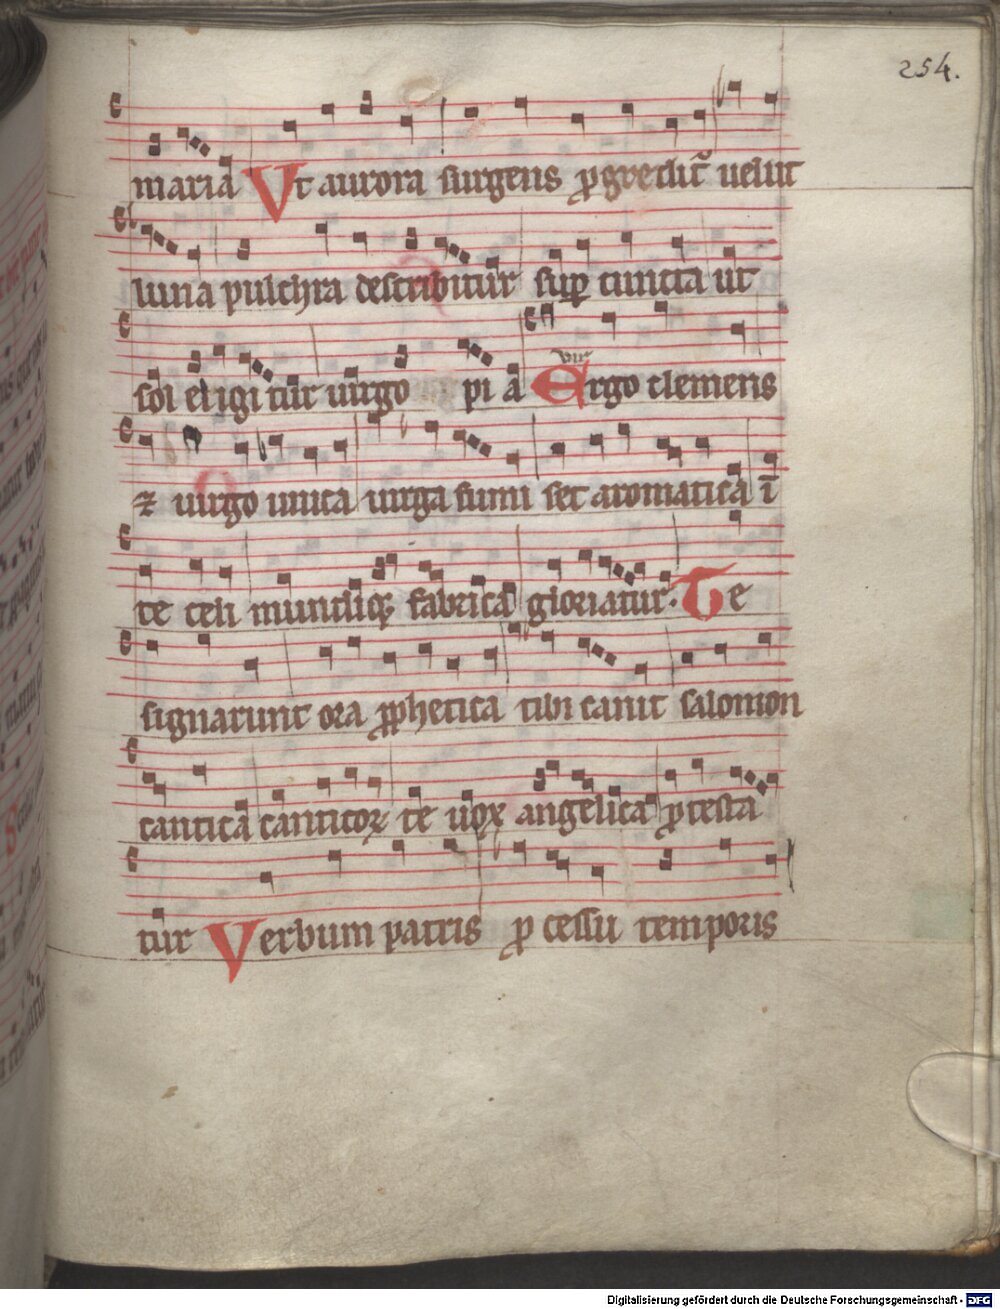 254.
maria Vt aurora surgens ꝓgredit᷑ uelut
luna pulchra describitur suꝑ cuncta ut
sol eligitur uirgo pia Ergo clemens
⁊ uirgo unica uirga fumi set aromatica ī
te celi mundiqꝫ fabrica gloriatur. Te
signarunt ora ꝓphetica tibi canit salomon
cantica canticoꝝ te uox angelica ꝓtesta
tur Verbum patris ꝓcessu temporis
Digitalisierung gefördert durch die Deutsche Forschungsgemeinschaft - DFG